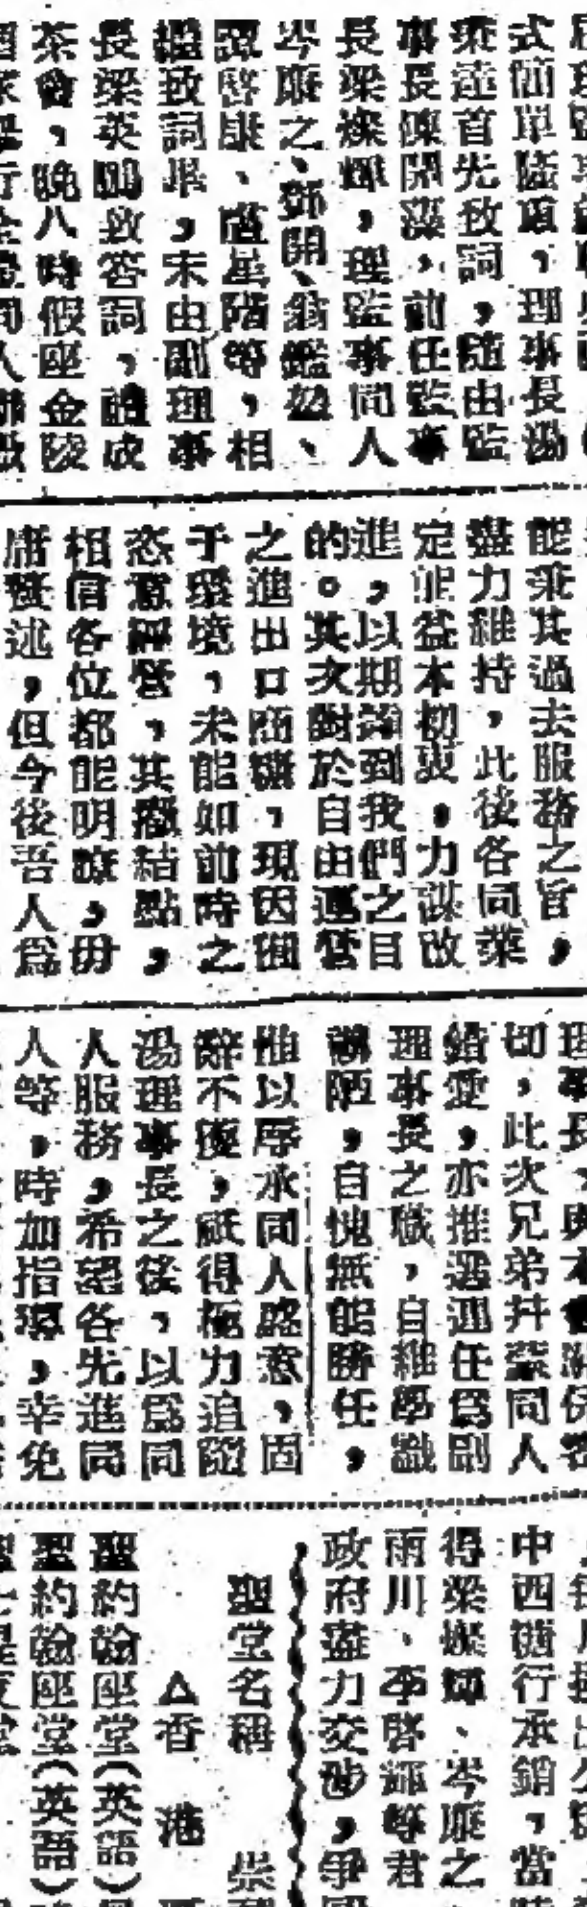 式簡單隆重，理事長湯
秉達首先致詞，隨由監
事長陳開藻，前任監事
長梁燦輝，理監事同人
岑廉之、鄧開、翁鑑勿、
譚啓康、盧星階等，相
繼致詞畢，末由副理事
長梁英鵬致答詞，禮成
茶會，晚八時假座金陵
能秉其過去服務之旨，
盡力維持，此後各同業
定能益本初衷，力謀改
進，以期達到我們之目
的。其次對於自由運營
之進出口商務，現因囿
于環境，未能如前時之
恣意經營，其癥結點，
相信各位都能明瞭，毋
庸贅述，但今後吾人爲
切，此次兄弟幷蒙同人
錯愛，亦推選連任爲副
理事長之職，自維學識
譾陋，自愧無能勝任，
惟以厚承同人盛意，固
辭不獲，祇得極力追隨
湯理事長之後，以爲同
人服務，希望各先進同
人等，時加指導，幸免
中西糖行承銷，當
得梁燦輝、岑廉之
雨川、李啓輝等君
政府盡力交涉，爭
聖堂名稱
△香港
聖約翰座堂（英語）
聖約翰座堂（英語）